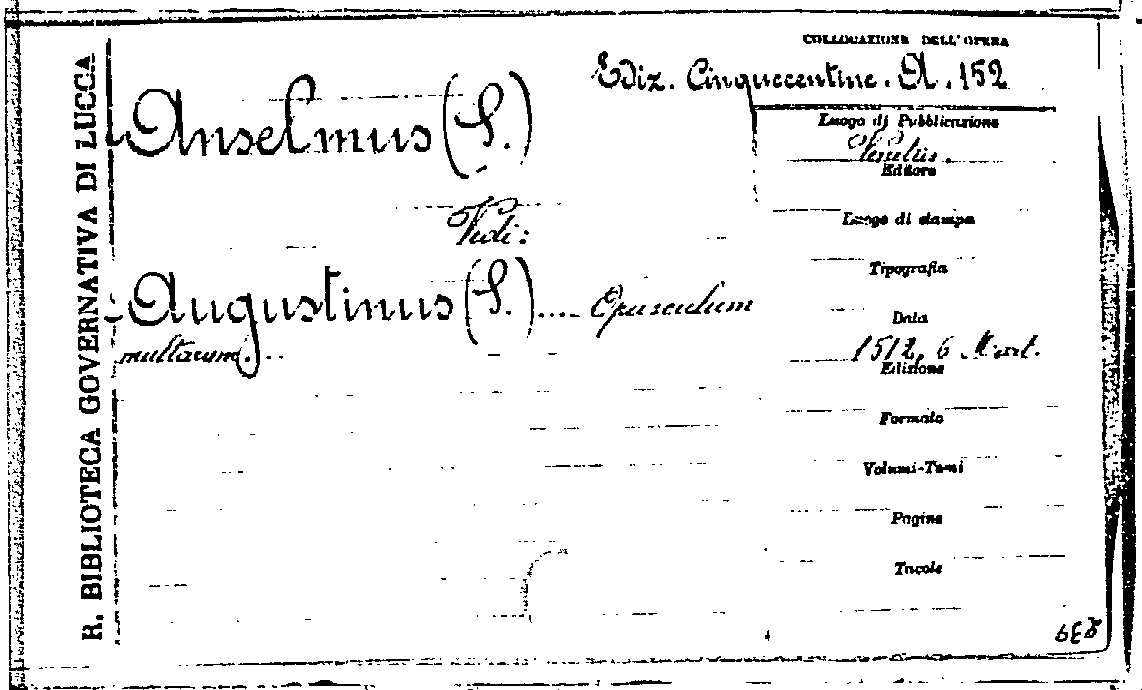 R. BIBLIOTECA GOVERNATIVA DI LUCCA
COLLOCAZIONE DELL'OPERA
Ediz. Cinquecentine. A. 152
Anselmus (S.)
Vedi:
Augustinus (S.).... Opusculum
multarum...
Luogo di Pubblicazione
Venetiis.
Editore
Luogo di stampa
Tipografia
Data
1512, 6 Mart.
Edizione
Formato
Volumi-Tomi
Pagine
Tavole